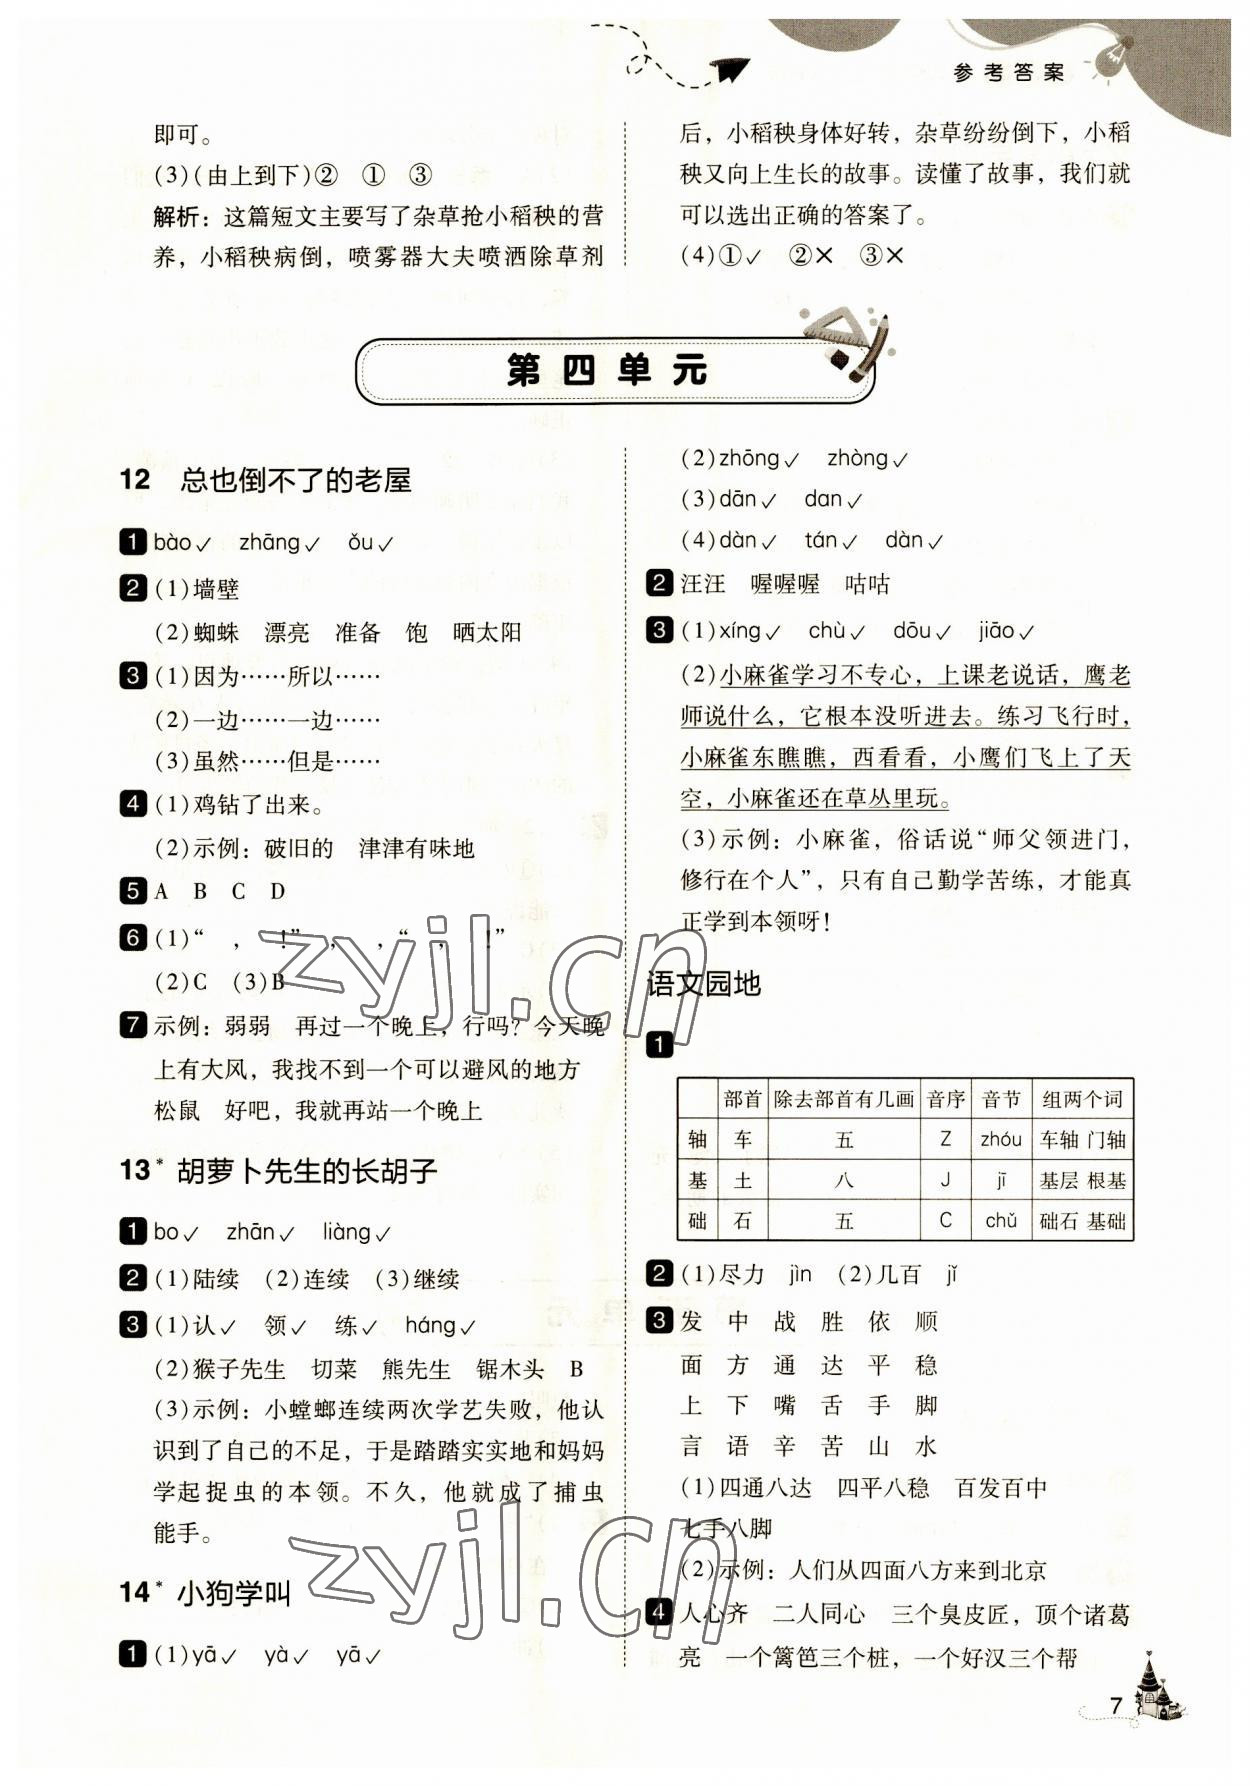 参考答案
即可。
(3)(由上到下)② ① ③
解析：这篇短文主要写了杂草抢小稻秧的营
养，小稻秧病倒，喷雾器大夫喷洒除草剂
后，小稻秧身体好转，杂草纷纷倒下，小稻
秧又向上生长的故事。读懂了故事，我们就
可以选出正确的答案了。
(4)①✓ ②× ③×
第四单元
12 总也倒不了的老屋
1 bào✓ zhāng✓ ǒu✓
2 (1)墙壁
(2)蜘蛛 漂亮 准备 饱 晒太阳
3 (1)因为……所以……
(2)一边……一边……
(3)虽然……但是……
4 (1)鸡钻了出来。
(2)示例：破旧的 津津有味地
5 A B C D
6 (1)“ ， ！” ， ，“ ， ！”
(2)C (3)B
7 示例：弱弱 再过一个晚上，行吗？今天晚
上有大风，我找不到一个可以避风的地方
松鼠 好吧，我就再站一个晚上
13* 胡萝卜先生的长胡子
1 bo✓ zhān✓ liàng✓
2 (1)陆续 (2)连续 (3)继续
3 (1)认✓ 领✓ 练✓ háng✓
(2)猴子先生 切菜 熊先生 锯木头 B
(3)示例：小螳螂连续两次学艺失败，他认
识到了自己的不足，于是踏踏实实地和妈妈
学起捉虫的本领。不久，他就成了捕虫
能手。
14* 小狗学叫
1 (1)yā✓ yà✓ yā✓
(2)zhōng✓ zhòng✓
(3)dān✓ dan✓
(4)dàn✓ tán✓ dàn✓
2 汪汪 喔喔喔 咕咕
3 (1)xíng✓ chù✓ dōu✓ jiāo✓
(2)小麻雀学习不专心，上课老说话，鹰老
师说什么，它根本没听进去。练习飞行时，
小麻雀东瞧瞧，西看看，小鹰们飞上了天
空，小麻雀还在草丛里玩。
(3)示例：小麻雀，俗话说“师父领进门，
修行在个人”，只有自己勤学苦练，才能真
正学到本领呀！
语文园地
1
部首 除去部首有几画 音序 音节 组两个词
轴 车 五 Z zhóu 车轴 门轴
基 土 八 J jī 基层 根基
础 石 五 C chǔ 础石 基础
2 (1)尽力 jìn (2)几百 jǐ
3 发 中 战 胜 依 顺
面 方 通 达 平 稳
上 下 嘴 舌 手 脚
言 语 辛 苦 山 水
(1)四通八达 四平八稳 百发百中
七手八脚
(2)示例：人们从四面八方来到北京
4 人心齐 二人同心 三个臭皮匠，顶个诸葛
亮 一个篱笆三个桩，一个好汉三个帮
7
zyjl.cn
zyjl.cn